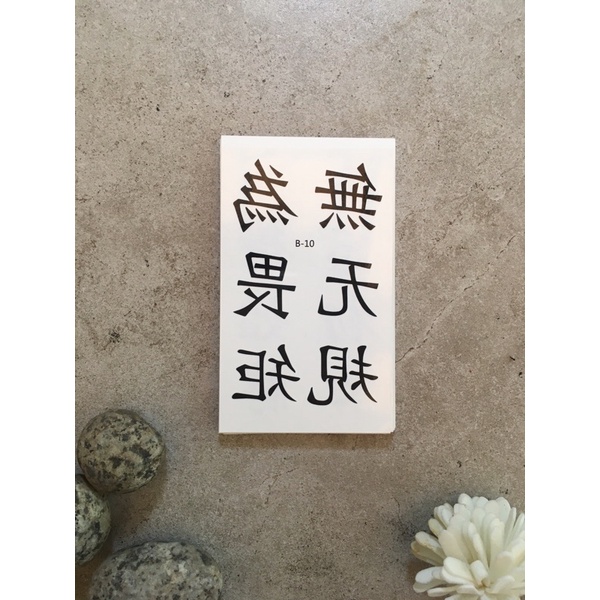 無為
B-10
无畏
規矩